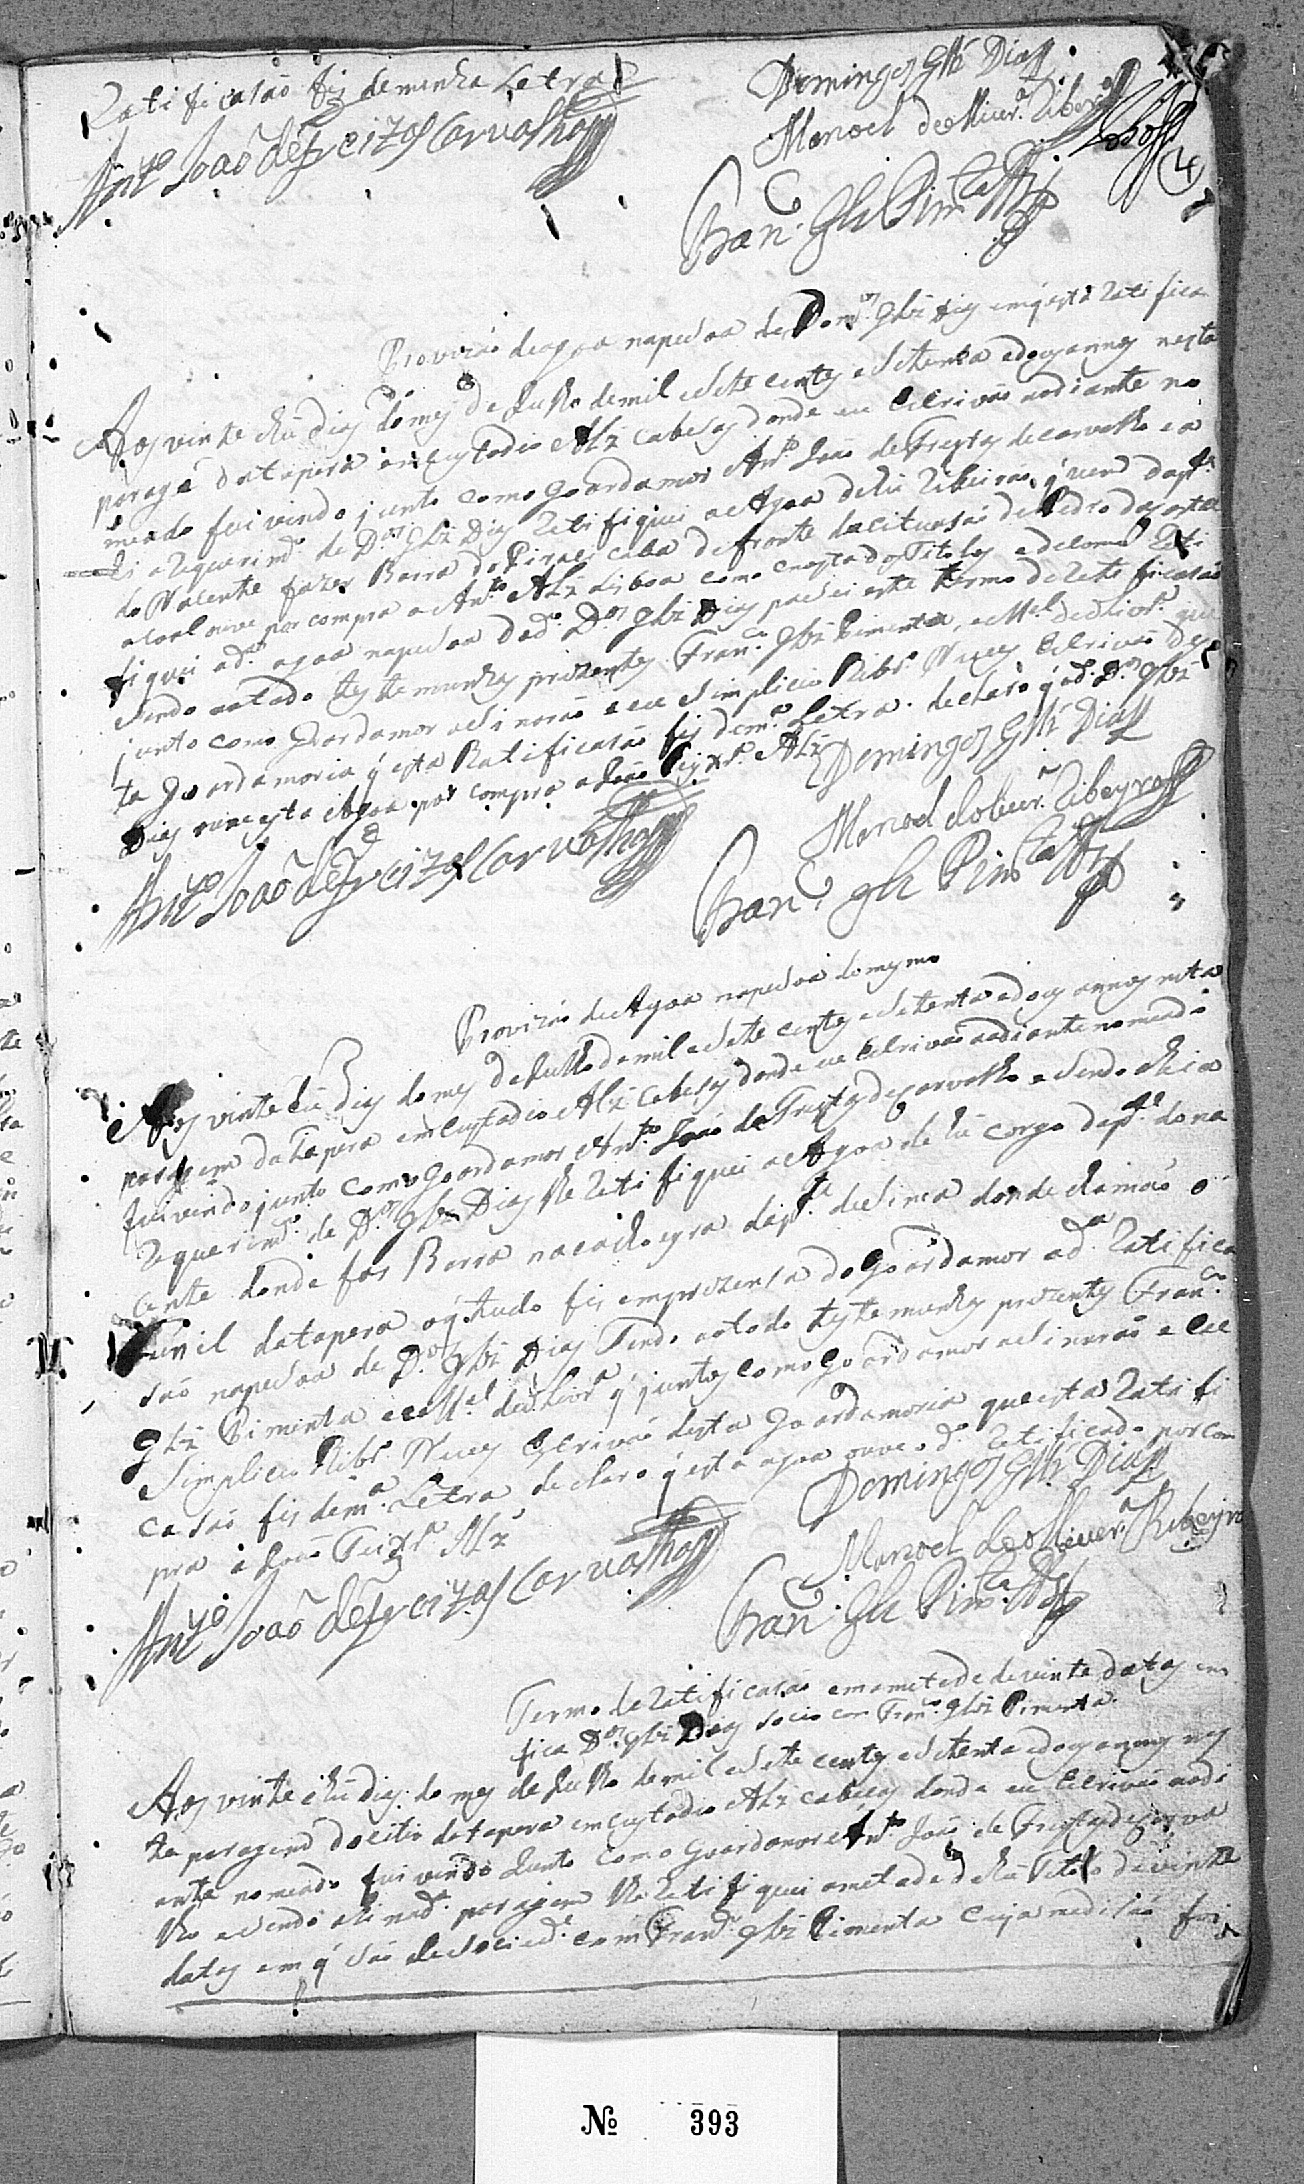 Ratificasaõ fis deminha Letra
Domingos Glz Dias
Manoel deOliuer.ª Ribeyro
4
Ant.º Joaõ deFreitas Carvalho
Fran.co Glz Pim.ta
Provizaõ deagoa napesoa de Dom.os Glz Dias emq̃ esta Ratifica
Aos vinte ehũ dias do mes de Julho demil esete centos esetenta edous annos nesta
paragẽ datapera emCustodio Alz Cabesas donde eu escrivaõ aodiante no
meado fui vindo junto como goardamor Ant.º Joaõ deFreytas decarvalho e a
hi arequerim.to de D.os Glz Dias Ratifiquei a Agoa dehũ Ribeiraõ q̃ vem dap.te
do Nacente fazer Barra do Piracicaba defronte dacituasaõ dePedro dacosta
acoal ouve por compra a Ant.º Alz Lisboa como consta dos Titolos edecomo Rati
fiquei ad.ª agoa napesoa dod.º D.os Glz Dias pasei este termo deRatificasaõ
sendo atodo testemunhas prizentes Fran.co Glz Pimenta, eM.el deOliur.ª que
junto como Goardamor asinaraõ e eu Simplicio Ribr.º Nunes escrivaõ des
ta Goardamoria q̃ esta Ratificasaõ fis dem.ª Letra. declaro q̃ od.º D.os Glz
Dias ouve esta Agoa por compra a Joaõ Teixr.ª Alz
Domingos Glz Dias
Manoel deOliuer.ª Ribeyro
Ant.º Joaõ deFreitas Carvalho
Fran.co Glz Pim.ta
Provizaõ deAgoa napesoa domesmo
Aos vinte ehũ dias do mes deJulho demil esete centos esetenta edous annos nesta
paragem datapera emCustodio Alz Cabesas donde eu escrivaõ aodiante nomeado
fui vindo junto como goardamor Ant.º Joaõ deFreytas decarvalho esendo ahi a
Requerim.to de D.os Glz Dias lhe Ratifiquei a Agoa de hũ corgo dap.te dona
cente donde fas Barra nacachoeyra dap.te desima donde chamaõ o
Funil datapera oq̃ tudo fis emprezensa do goardamor ad.ª Ratifica
saõ napesoa de D.os Glz Dias sendo atodo testemunhas prizentes Fran.co
Glz Pimenta eM.el deOliur.ª q̃ juntos como goardamor asinaraõ e eu
Simplicio Ribr.º Nunes escrivaõ desta goardamoria queesta Ratifi
casaõ fis dem.ª Letra declaro q̃ esta agoa ouve od.º Ratificado porcom
pra a Joaõ Teixr.ª Alz
Domingos Glz Dias
Manoel deOliuer.ª Ribeyro
Ant.º Joaõ deFreitas Carvalho
Fran.co Glz Pim.ta
Termo deRatificasaõ emametade devinte datas em
fica D.os Glz Dias socio com Fran.co Glz Pimenta
Aos vinte ehũ dias do mes de Julho demil esete centos esetenta edous annos nes
ta paragem docitio datapera emCustodio Alz cabesas donde eu escrivaõ aodi
ante nomeado fui vindo Junto como Guardamor Ant.º Joaõ de Freytas decarva
lho esendo ahi nad.ª paragem lhe Ratifiquei ametade dehũ Titolo devinte
datas em q̃ saõ desociad.e com Fran.co Glz Pimenta cuja medisaõ foi
Nº 393